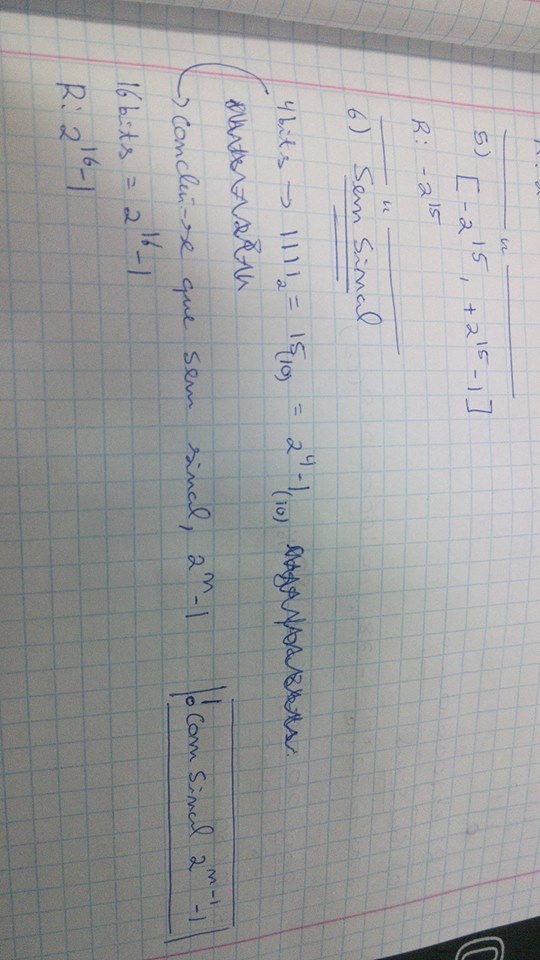 5) [-2^15, +2^15-1]
R: -2^15
6) Sem Sinal
4 bits → 1111₂ = 15(10) = 2^4-1(10)
→ conclui-se que sem sinal, 2^n-1
! Com Sinal 2^n-1 -1
16 bits = 2^16-1
R: 2^16-1